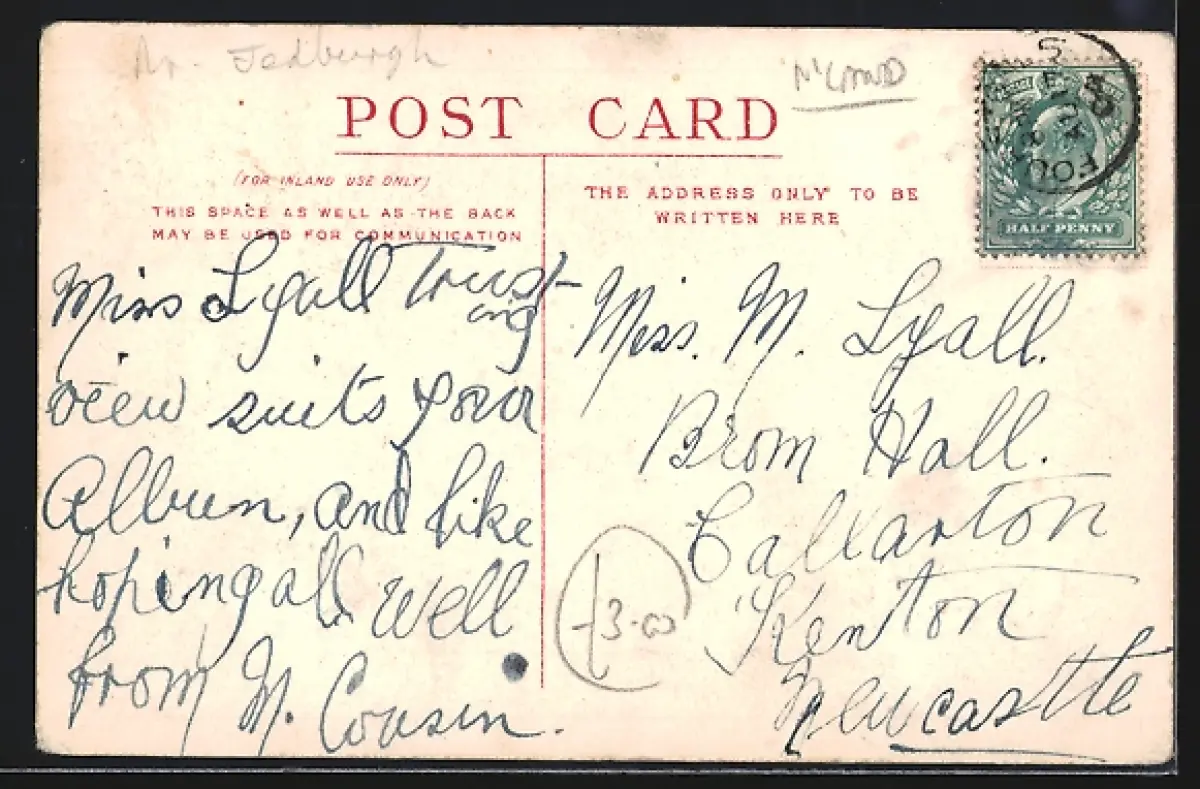 Nr. Jedburgh
N'LAND
POST CARD
(FOR INLAND USE ONLY)
THIS SPACE AS WELL AS THE BACK
MAY BE USED FOR COMMUNICATION
THE ADDRESS ONLY TO BE
WRITTEN HERE
HALF PENNY
Miss Lyall Trust-
ing
view suits your
Album, and like
hoping all well
from M. Cousin.
Miss. M. Lyall.
Brom Hall.
Callarton
Kenton
Newcastle
3-00